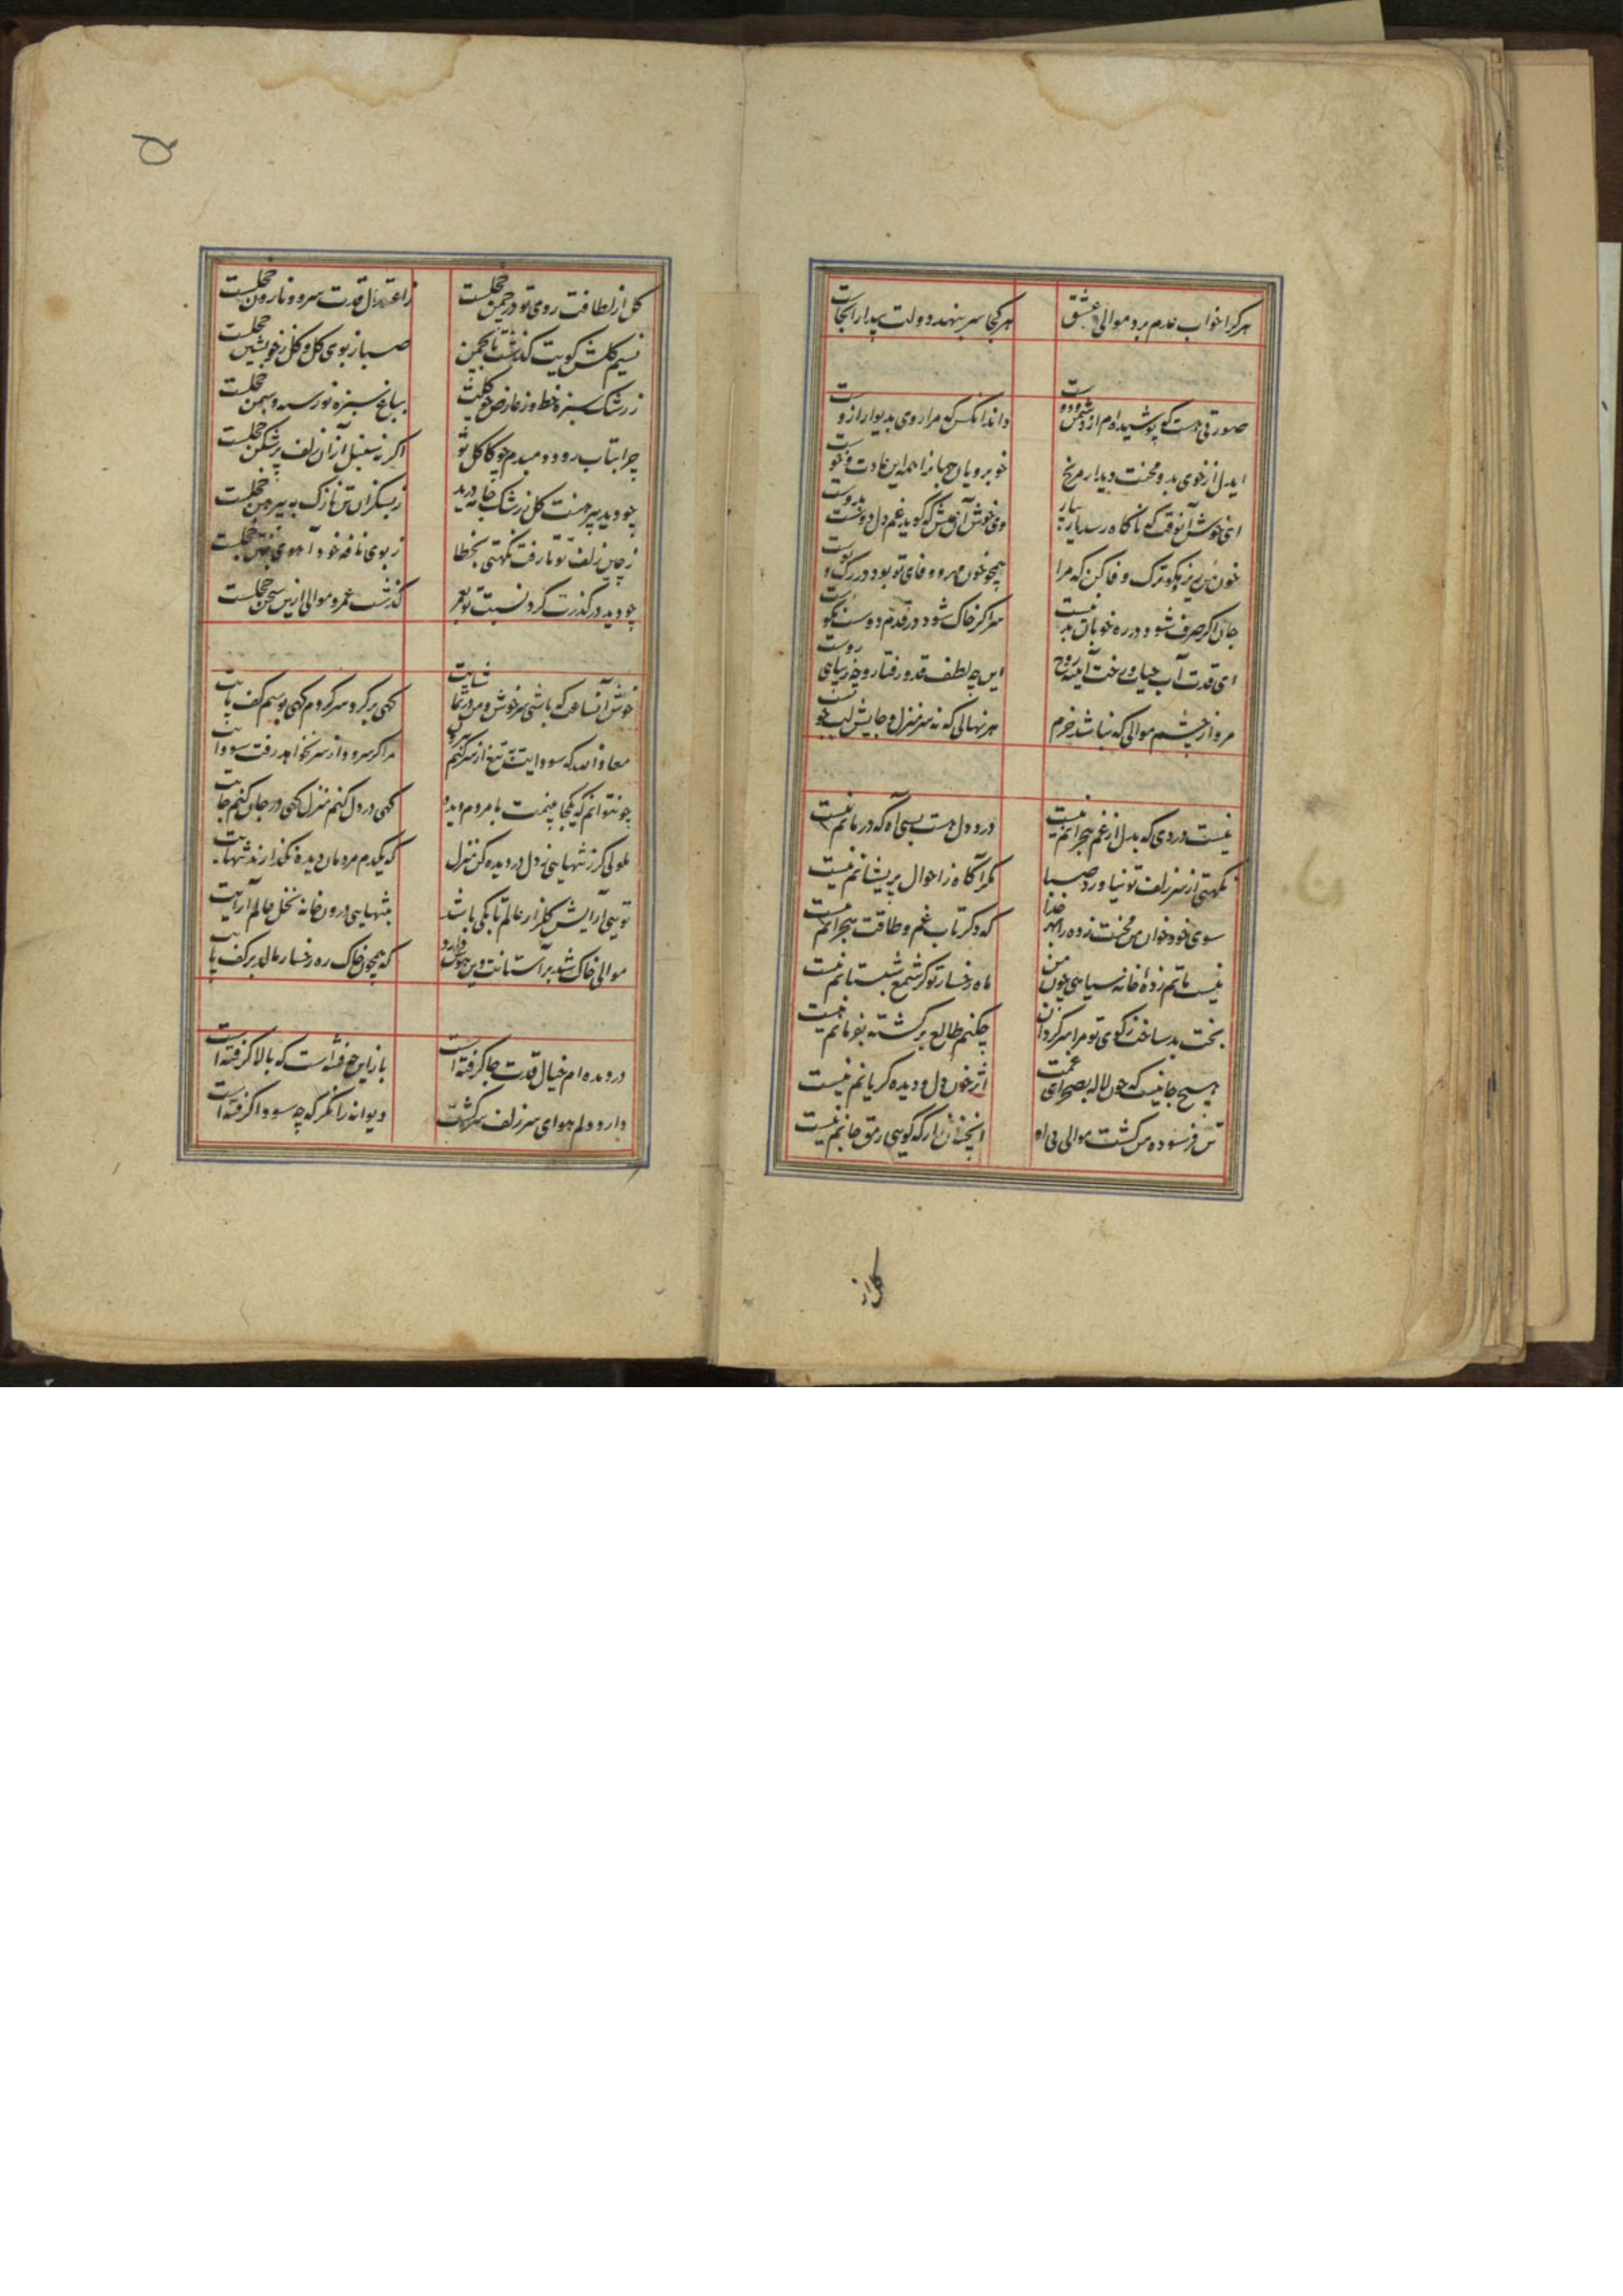 هر کرا خواب عدم برد موالی عشق
هر کجا سر بنهد دولت بیدار انجاست
صورتی هست که پوشیده ام از دشمن و دوست
داند انکس که مرا روی بدیوار ازوست
ایدل از خوی بد و محنت دیدار مرنج
خوبرویان جهانرا همه این عادت و خوست
ای خوش آنوقت که ناکاه رسد یار بیار
وی خوش آن عیش که کوید غم دل دوست بدوست
خون من ریز مکو ترک وفا کن که مرا
همچو خون مهر و وفای تو بود در رک و پوست
جان اکر صرف شود در ره خوبان بد نیست
سر اکر خاک شود در قدم دوست نکوست
ای قدت آب حیات و رخت آینه روح
این چه لطف قد و رفتار و چه زیبایی روست
مرو از چشم موالی که نباشد خرم
هر نهالی که نه سر منزل و جایش لب جوست
نیست دردی که بدل از غم هجرانم نیست
درد دل هست بسی آه که درمانم نیست
نکهتی از سر زلف تو نیاورد صبا
مکر آکاه ز احوال پریشانم نیست
سوی خود خوان من محنت زده را بهر خدا
که دکر تاب غم و طاقت هجرانم نیست
نیست ماتم زدهٔ خانه سیاهی چون من
ماه رخسار تو کر شمع شبستانم نیست
بخت بد ساخت ز کوی تو مرا سرکردان
چکنم طالع برکشته بفرمانم نیست
هیچ جا نیست که چون لاله بصحرای غمت
اثر خون دل و دیده کریانم نیست
تن فرسوده من کشت موالی بی او
انچنان زار که کویی رمق جانم نیست
کل از
۵
کل از لطافت روی تو در چمن خجلست
ز اعتدال قدت سرو و نارون خجلست
نسیم کلشن کویت کذشت تا بچمن
صبا ز بوی کل و کل ز خویشتن خجلست
ز رشک سبزه خط و ز عارض چو کلت
بباغ سبزه نورسته و سمن خجلست
چرا بتاب رود دمبدم چو کاکل تو
اکر نه سنبل از ان زلف پرشکن خجلست
چو دید پیرهنت کل ز رشک جامه درید
ز بسکه زان تن نازک به پیرهن خجلست
ز چین زلف تو تا رفت نکهتی بخطا
ز بوی نافه خود آهوی ختن خجلست
چو دید در کذرت کرد نسبت تو بعمر
کذشت عمر و موالی ازین سخن خجلست
خوش آنساعت که باشی سرخوش و من در تماشایت
کهی بر کرد سر کردم کهی بوسم کف پایت
معاذ الله که سودایت به تیغ از سر کنم بیرون
مرا کر سر رود از سر نخواهد رفت سودایت
چو نتوانم که یکجا بینمت با مردم دیده
کهی در دل کنم منزل کهی در جان کنم جایت
ملولی کر ز تنهایی ز دل در دیده کن منزل
که یکدم مردمان دیده نکذارند تنهایت
تویی آرایش کلزار عالم تا بکی باشد
بتنهایی درون خانه نخل عالم آرایت
موالی خاک شد بر آستانت وین هوس دارد
که همچون خاک ره رخسار مالد بر کف پایت
در دیده ام خیال قدت جا کرفته است
باز این چه فتنه است که بالا کرفته است
دارد دلم هوای سر زلف سرکشت
دیوانه را نکر که چه سودا کرفته است